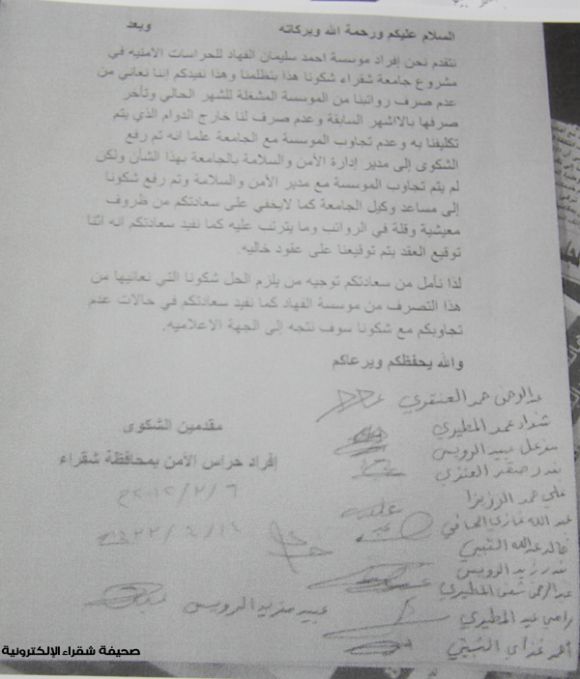 السلام عليكم ورحمة الله وبركاته وبعد
نتقدم نحن إفراد موسسة احمد سليمان الفهاد للحراسات الامنيه في
مشروع جامعة شقراء شكونا هذا بتظلمنا وهذا نفيدكم إننا نعاني من
عدم صرف رواتبنا من الموسسة المشغلة للشهر الحالي وتأخر
صرفها بالااشهر السابقة وعدم صرف لنا خارج الدوام الذي يتم
تكليفنا به وعدم تجاوب الموسسة مع الجامعة علما انه تم رفع
الشكوى إلى مدير إدارة الأمن والسلامة بالجامعة بهذا الشأن ولكن
لم يتم تجاوب الموسسة مع مدير الأمن والسلامة وتم رفع شكونا
إلى مساعد وكيل الجامعة كما لايخفي على سعادتكم من ظروف
معيشية وقلة في الرواتب وما يترتب عليه كما نفيد سعادتكم انه اثنا
توقيع العقد يتم توقيعنا على عقود خاليه.
لذا نأمل من سعادتكم توجيه من يلزم الحل شكونا التي نعانيها من
هذا التصرف من موسسة الفهاد كما نفيد سعادتكم في حالات عدم
تجاوبكم مع شكونا سوف نتجه إلى الجهة الاعلاميه.
والله يحفظكم ويرعاكم
مقدمين الشكوى
إفراد حراس الأمن بمحافظة شقراء
عبدالرحمن حمد العنقري
المطيري
الرويس
بندر صقر العنزي
علي حمد
عبدالله غازي
خالد عبدالله الثبيتي
بندر زيد الرويس
عبدالرحمن المطيري
عبيد الرويس
رامي عيد المطيري
احمد الثبيتي
صحيفة شقراء الإلكترونية